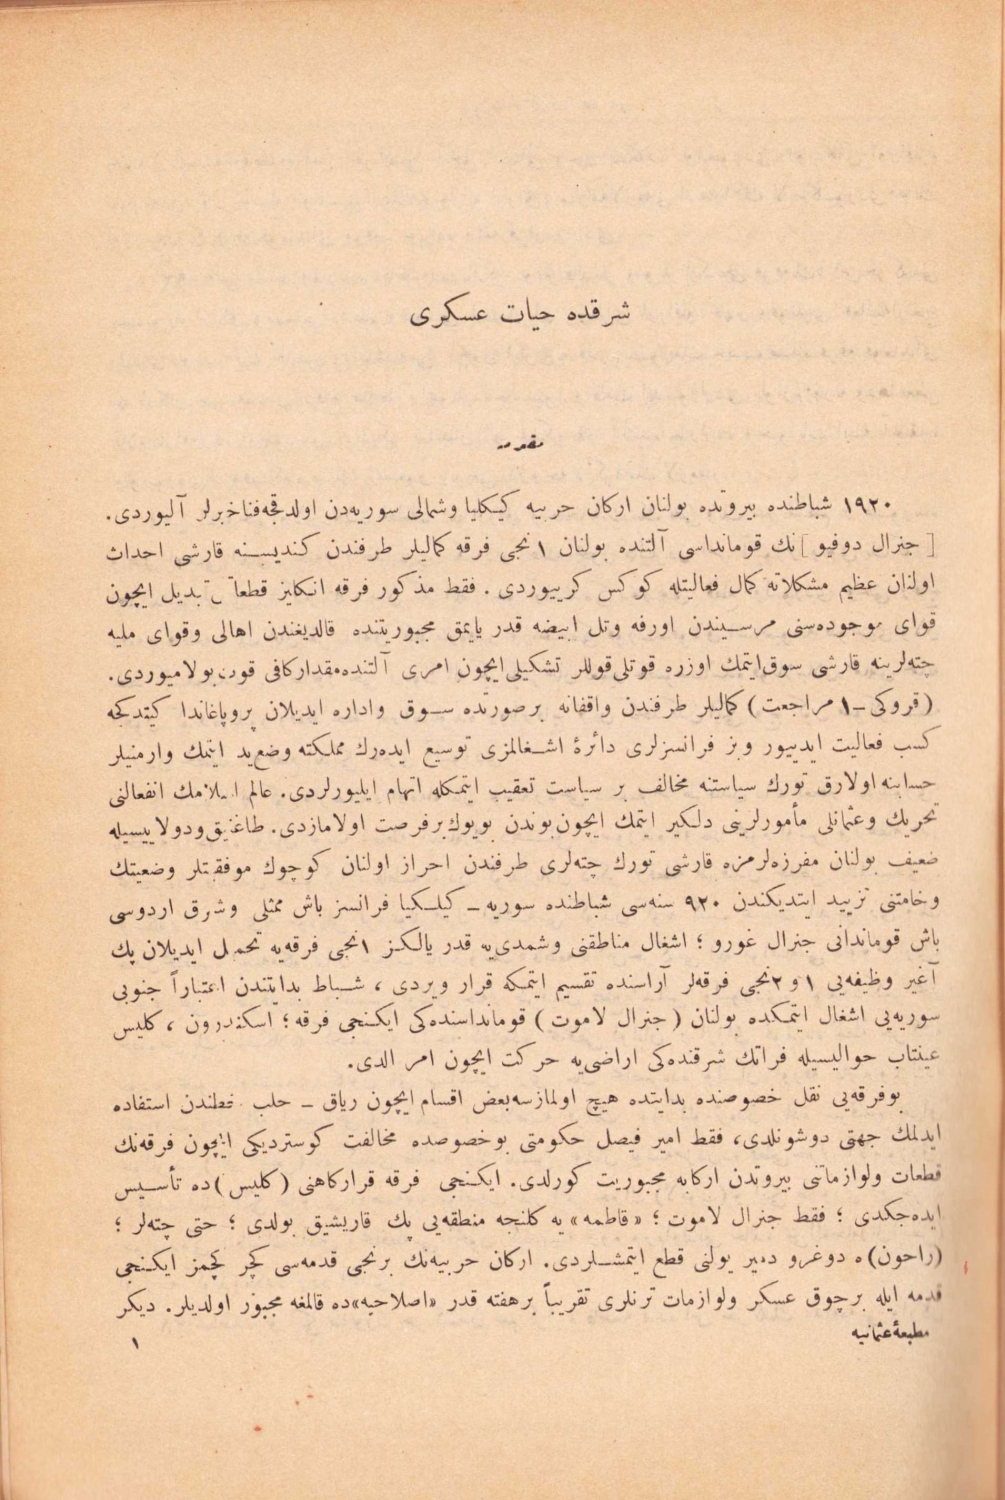 شرقده حیات عسكری
مقدمه
١٩٢٠ شباطنده بیروتده بولنان اركان حربیه كیلكیا وشمالی سوریه‌دن اولدقجه فنا خبرلر آلیوردی.
[جنرال دوفیو]نك قومانداسی آلتنده بولنان ١ نجی فرقه كمالیلر طرفندن كندیسنه قارشی احداث
اولنان عظیم مشكلاته كمال فعالیتله كوكس كرییوردی. فقط مذكور فرقه انكلیز قطعاتی تبدیل ایچون
قوای موجوده‌سنی مرسیندن اورفه وتل ابیضه قدر یایمق مجبوریتنده قالدیغندن اهالی وقوای ملیه
چته‌لرینه قارشی سوق ایتمك اوزره قوتلی قوللر تشكیلی ایچون امری آلتنده مقدار كافی قوت بولامیوردی.
(قروكی ـ ١ مراجعت) كمالیلر طرفندن واقفانه برصورتده سوق واداره ایدیلان پروپاغاندا كیتدكجه
كسب فعالیت ایدییور وبز فرانسزلری دائرۀ اشغالمزی توسیع ایده‌رك مملكته وضع ید ایتمك وارمنیلر
حسابنه اولارق تورك سیاستنه مخالف بر سیاست تعقیب ایتمكله اتهام ایلیورلردی. عالم اسلامك انفعالنی
تحریك وعثمانلی مأمورلرینی دلكیر ایتمك ایچون بوندن بویوك برفرصت اولامازدی. طاغنیق ودولاییسیله
ضعیف بولنان مفرزه‌لرمزه قارشی تورك چته‌لری طرفندن احراز اولنان كوچوك موفقیتلر وضعیتك
وخامتنی تزیید ایتدیكندن ٩٢٠ سنه‌سی شباطنده سوریه ـ كیلكیا فرانسز باش ممثلی وشرق اردوسی
باش قوماندانی جنرال غورو ؛ اشغال مناطقنی وشمدی‌یه قدر یالكز ١ نجی فرقه‌یه تحمیل ایدیلان پك
آغیر وظیفه‌یی ١ و ٢ نجی فرقه‌لر آراسنده تقسیم ایتمكه قرار ویردی ، شباط بدایتندن اعتباراً جنوبی
سوریه‌یی اشغال ایتمكده بولنان (جنرال لاموت) قومانداسنده‌كی ایكنجی فرقه ؛ اسكندرون ، كلیس
عینتاب حوالیسیله فراتك شرقنده‌كی اراضی‌یه حركت ایچون امر الدی.
بوفرقه‌یی نقل خصوصنده بدایتده هیچ اولمازسه بعض اقسام ایچون ریاق ـ حلب خطندن استفاده
ایدلمك جهتی دوشونلدی، فقط امیر فیصل حكومتی بوخصوصده مخالفت كوستردیكی ایچون فرقه‌نك
قطعات ولوازماتنی بیروتدن اركابه مجبوریت كورلدی. ایكنجی فرقه قراركاهنی (كلیس)ده تأسیس
ایده‌جكدی ؛ فقط جنرال لاموت ؛ «قاطمه» یه كلنجه منطقه‌یی پك قاریشیق بولدی ؛ حتی چته‌لر ؛
(راحون)ه دوغرو دمیر یولنی قطع ایتمشلردی. اركان حربیه‌نك برنجی قدمه‌سی كچر كچمز ایكنجی
قدمه ایله برچوق عسكر ولوازمات ترنلری تقریباً برهفته قدر «اصلاحیه»ده قالمغه مجبور اولدیلر. دیكر
مطبعۀ عثمانیه
١